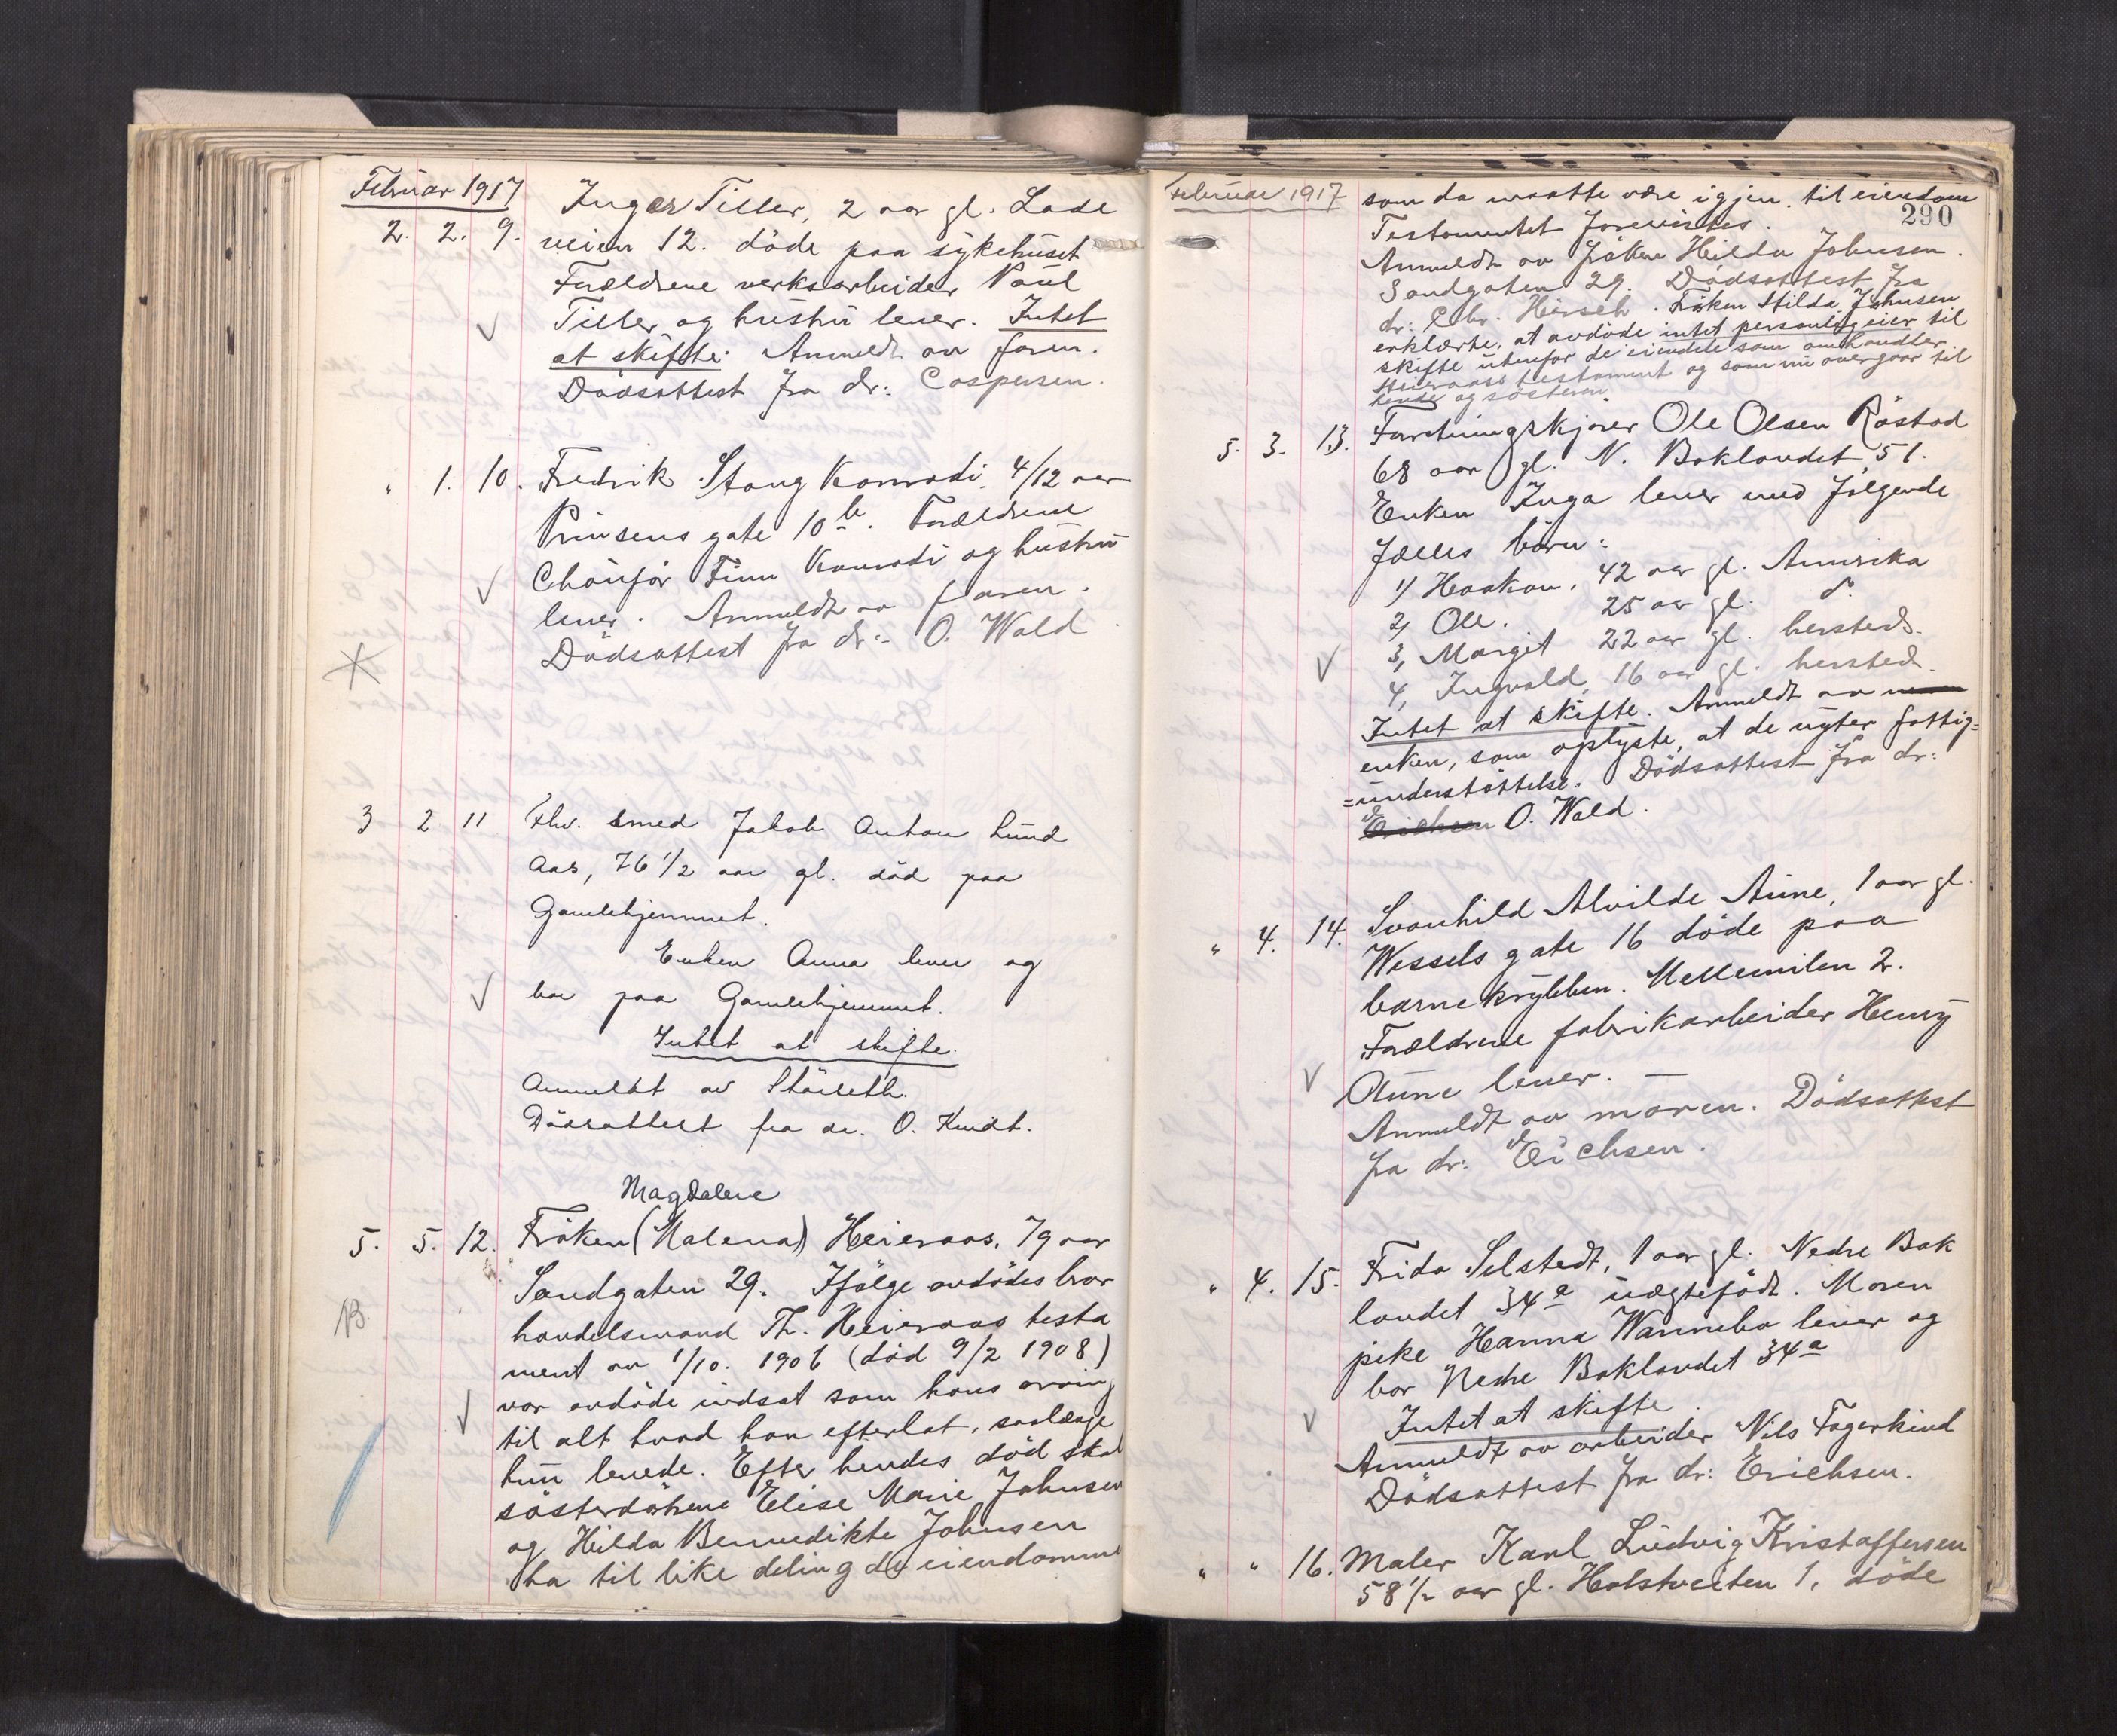 Februar 1917
2. 2. 9. Inger Tiller, 2 aar gl. Lade
veien 12. döde paa sykehuset
Forældrene verksarbeider Paul
Tiller og hustru lever. Intet
at skifte. Anmeldt av faren.
Dödsattest fra dr: Caspersen.
" 1. 10. Fredrik Stang Konradi. 4/12 aar
Prinsens gate 10 b. Forældrene
Chauför Finn Konradi og hustru
lever. Anmeldt av faren.
Dödsattest fra dr: O. Wald
3 2 11 Fhv. smed Jakob Anton Lund
Aas, 76 1/2 aar gl. död paa
Gamlehjemmet.
Enken Anna lever og
bor paa Gamlehjemmet.
Intet at skifte.
Anmeldt av Stöiseth.
Dödsattest fra dr. O. Kindt.
Magdalene
5. 5. 12. Fröken (Malena) Heieraas, 79 aar
Sandgaten 29. Ifölge avdödes bror
NB.
handelsmand Th. Heieraas testa
ment av 1/10. 1906 (död 9/2 1908)
var avdöde indsat som hans arving
til alt hvad han efterlot, saalænge
hun levede. Efter hendes död skal
sösterdötrene Elise Marie Johnsen
og Hilda Benedikte Johnsen
ha til like deling de eiendomme
Februar 1917
290
som da maatte være igjen til eiendom
Testamentet forevistes.
Anmeldt av fröken Hilda Johnsen.
Sandgaten 29. Dödsattest fra
dr: Chr. Hirsch. Fröken Hilda Johnsen
erklærte, at avdöde intet personlig eier til
skifte utenfor de eiendele som omhandler
Heieraas testament og som nu overgaar til
hende og sösteren.
5. 3. 13. Forretningskjörer Ole Olsen Röstad
68 aar gl. N. Baklandet 51.
Enken Inga lever med fölgende
fælles börn:
1) Haakon. 42 aar gl. Amerika
2, Ole. 25 aar gl. do
3, Margit 22 aar gl. hersteds.
4, Ingvald, 16 aar gl. hersteds.
Intet at skifte. Anmeldt av
enken, som oplyste, at de nyter fattig=
=understöttelse. Dödsattest fra dr:
Erichsen O. Wald.
" 4. 14. Svanhild Alvilde Aune, 1 aar gl.
Wessels gate 16 döde paa
barnekrybben. Mellemilen 2.
Forældrene fabrikarbeider Henry
Aune lever. —
Anmeldt av moren. Dödsattest
fra dr: Erichsen.
" 4. 15. Frida Selstedt, 1 aar gl. Nedre Bak
landet 34 a uægtefödt. Moren
pike Hanna Wannebo lever og
bor Nedre Baklandet 34 a
Intet at skifte.
Anmeldt av arbeider Nils Fagerhind
Dödsattest fra dr: Erichsen.
" " 16. Maler Karl Ludvig Kristoffersen
58 1/2 aar gl. Holstveiten 1, döde